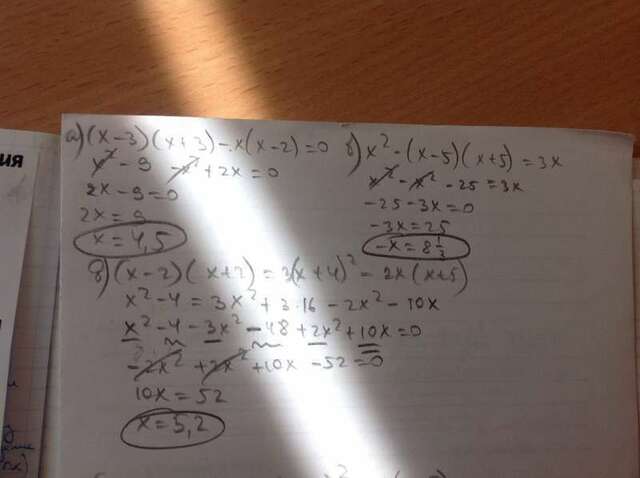 ия
а) (x-3)(x+3)-x(x-2)=0
x²-9-x²+2x=0
2x-9=0
2x=9
x=4,5
б) x²-(x-5)(x+5)=3x
x²-x²-25=3x
-25-3x=0
-3x=25
-x=8 1/3
в) (x-2)(x+2)=3(x+4)²-2x(x+5)
x²-4=3x²+3·16-2x²-10x
x²-4-3x²-48+2x²+10x=0
-2x²+2x²+10x-52=0
10x=52
x=5,2